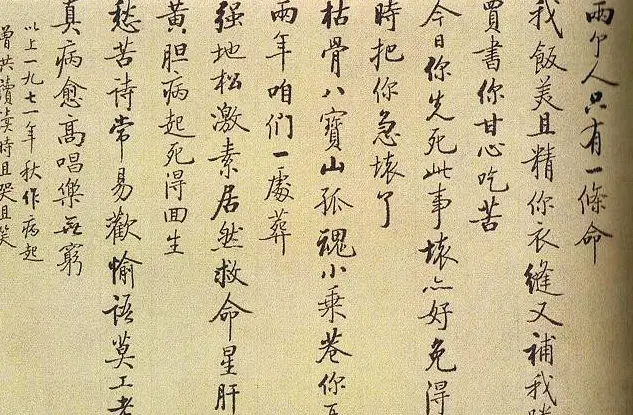 兩个人只有一條命
我飯美且精你衣縫又補我
買書你甘心吃苦
今日你先死此事壞亦好免得
時把你急壞了
枯骨八寶山孤魂小乘巷你
兩年咱们一處葬
强地松激素居然救命星肝
黄胆病起死得回生
愁苦詩常易歡愉語莫工老
真病愈高唱樂無窮
以上一九七一年秋作病起
曾共讀時且哭且笑